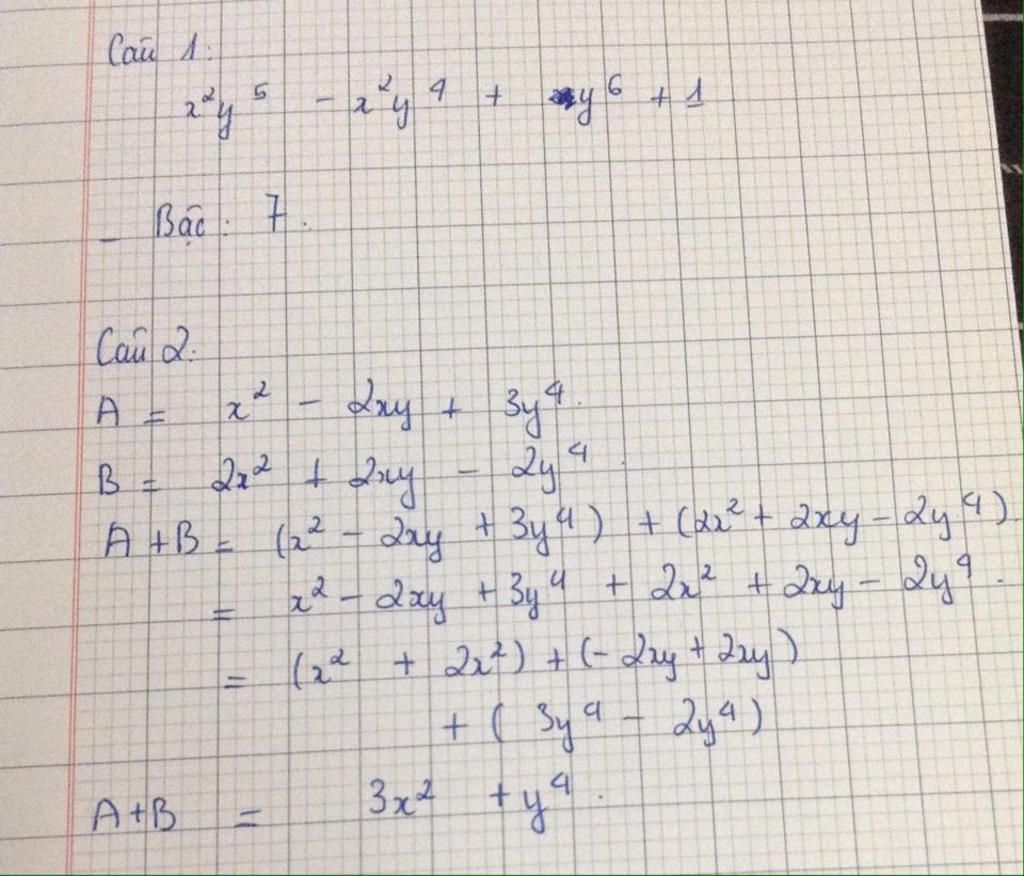 Câu 1:
x²y⁵ - x²y⁴ + y⁶ + 1
- Bậc : 7.
Câu 2.
A = x² - 2xy + 3y⁴.
B = 2x² + 2xy - 2y⁴.
A + B = (x² - 2xy + 3y⁴) + (2x² + 2xy - 2y⁴)
= x² - 2xy + 3y⁴ + 2x² + 2xy - 2y⁴.
= (x² + 2x²) + (- 2xy + 2xy)
+ ( 3y⁴ - 2y⁴)
A+B = 3x² + y⁴.